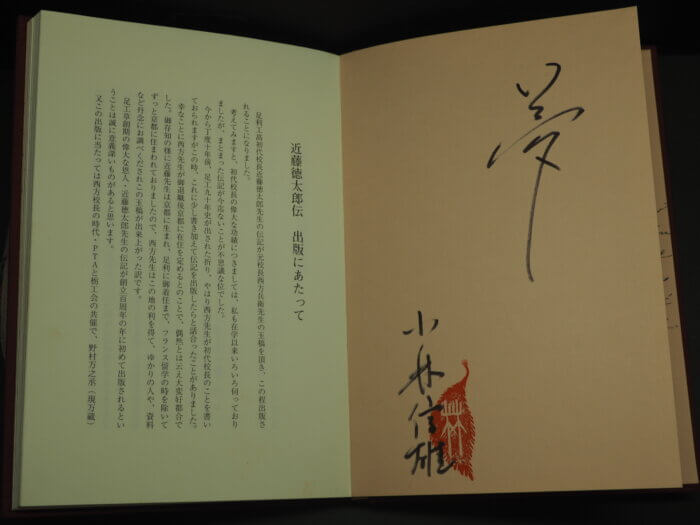 夢
小林信雄
近藤徳太郎伝　出版にあたって
足利工高初代校長近藤徳太郎先生の伝記が元校長西方兵衛先生の玉稿を頂き、この程出版さ
れることになりました。
考えてみますと、初代校長の偉大な功績につきましては、私も在学以来いろいろ伺っており
ましたが、まとまった伝記が今迄ないことが不思議な位でした。
今から丁度十年前、足工九十年史が出された折り、やはり西方先生が初代校長のことを書い
ておられますがこの時、これに少し書き加えて伝記を出版したらと話合ったことがありました。
幸なことに西方先生が御退職後京都に在住を定めるとのことで、偶然とは云え大変好都合で
した。御存知の様に近藤先生は京都に生まれ、足利に御着任まで、フランス留学の時を除いて
ずっと京都に住まわれておりましたので、西方先生はこの地の利を得て、ゆかりの人や、資料
など丹念にお調べくださいましてこの玉稿が出来上がった訳です。
足工草創期の偉大な恩人・近藤徳太郎先生の伝記が創立百周年の年に初めて出版されるとい
うことは誠に意義深いものがあると思います。
又この出版に当たっては西方校長の時代・PTAと栃工会の共催で、野村万之丞（現万蔵）